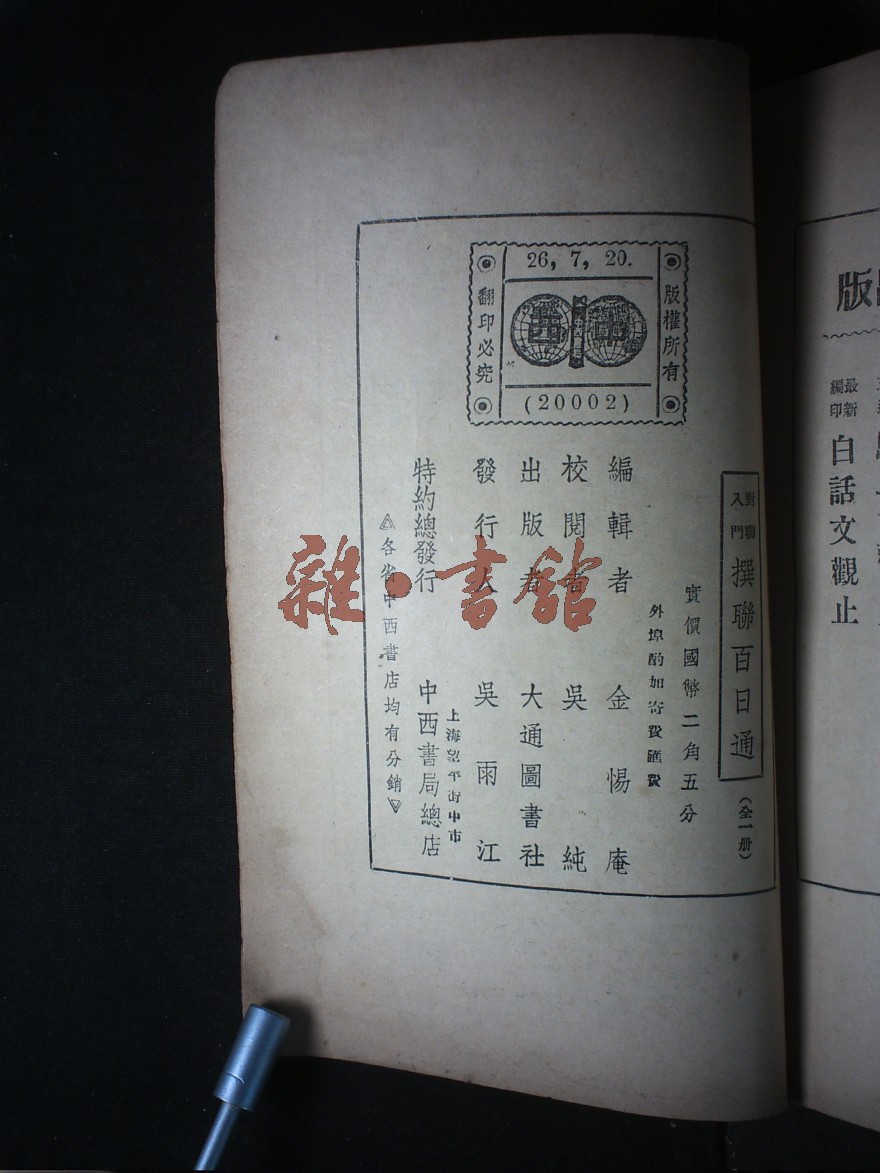 26, 7, 20.
版權所有
翻印必究
西中
(20002)
對聯入門
撰聯百日通
(全一册)
實價國幣二角五分
外埠酌加寄費匯費
編輯者 金惕庵
校閱者 吳純
出版者 大通圖書社
發行人 吳雨江
特約總發行 上海望平街中市 中西書局總店
△各省中西書店均有分銷▽
版
最新編印
白話文觀止
雜·書館